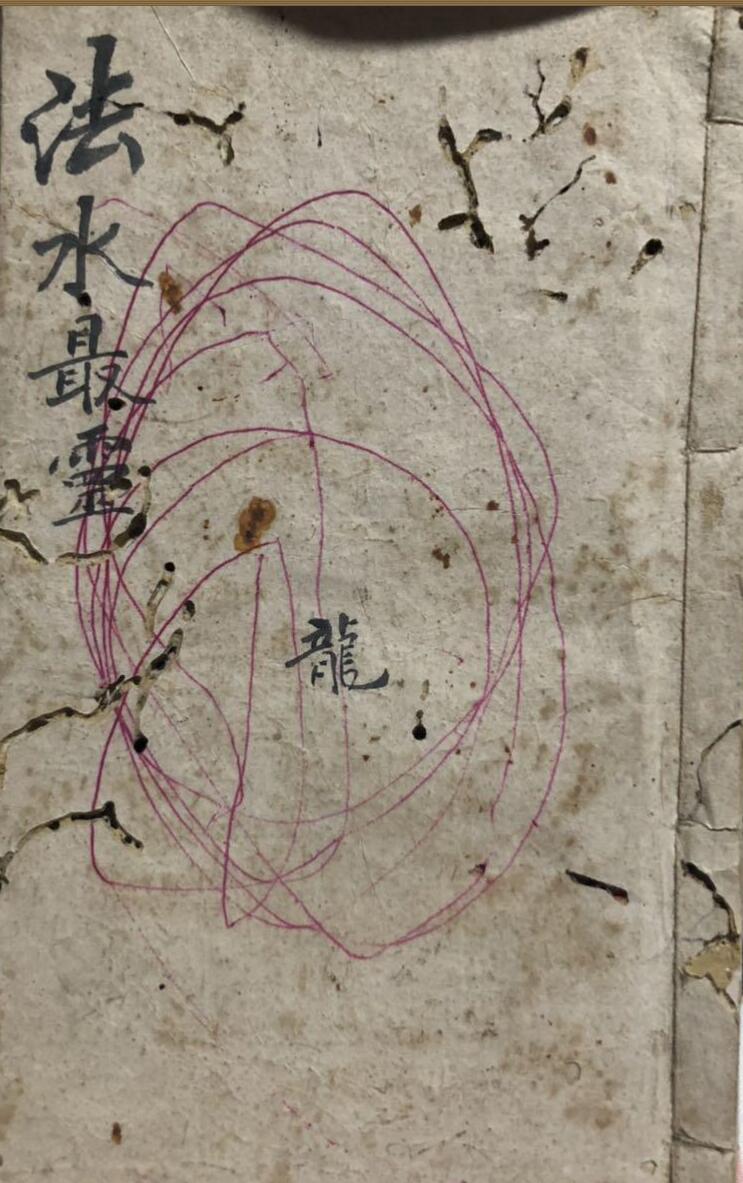 法水最靈
龍